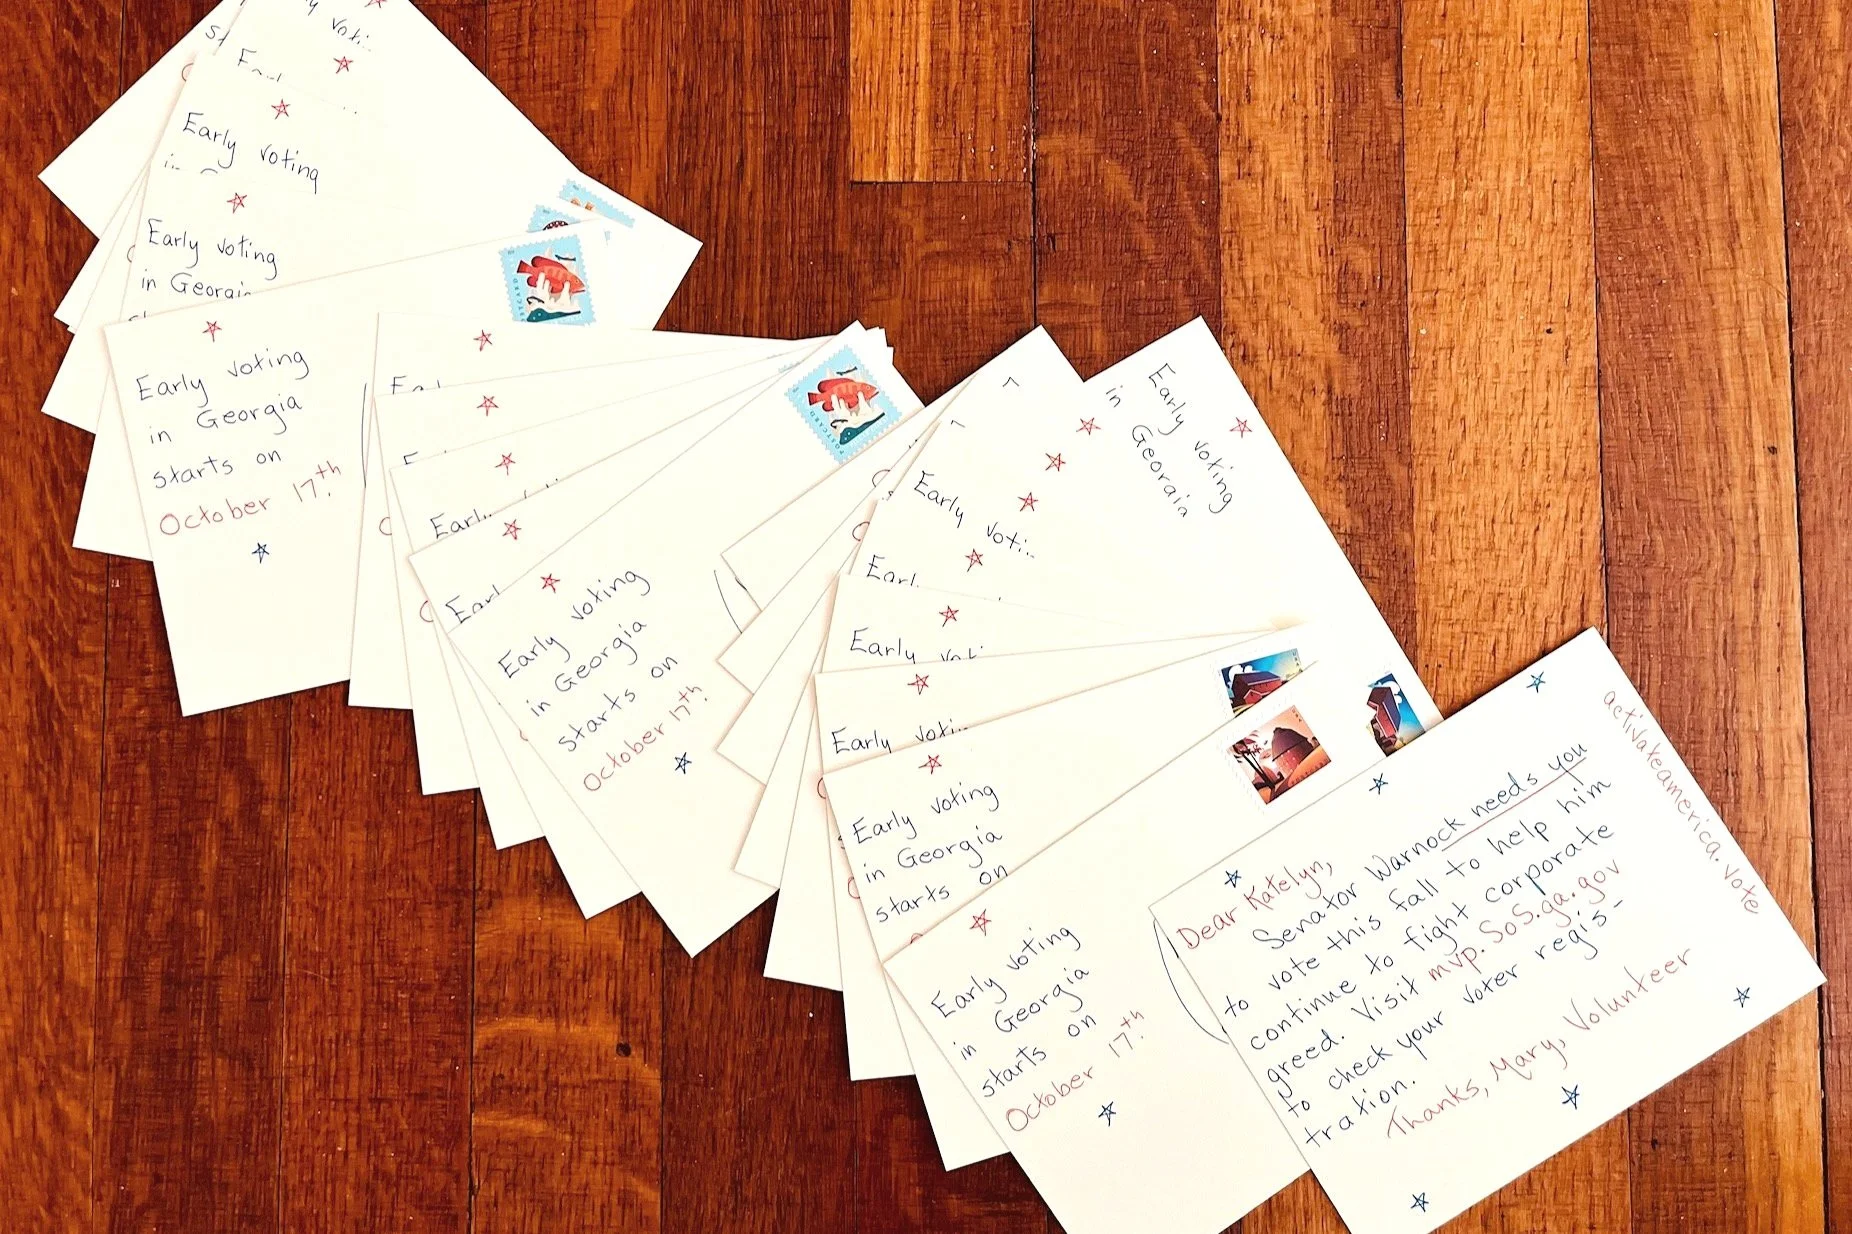 voti
Early voting
Early voting
in Georgia
Early voting
in Georgia
starts on
October 17th.
POSTCARD
Early
Early voting
in Georgia
starts on
October 17th.
POSTCARD
Early voti
Early
Early
Early voti
Early voting
in Georgia
starts on
Early voting
in Georgia
starts on
October 17th.
Early voting
in Georgia
Dear Katelyn,
Senator Warnock needs you
to vote this fall to help him
continue to fight corporate
greed. Visit mvp.SoS.ga.gov
to check your voter regis-
tration.
Thanks, Mary, Volunteer
activateamerica.vote